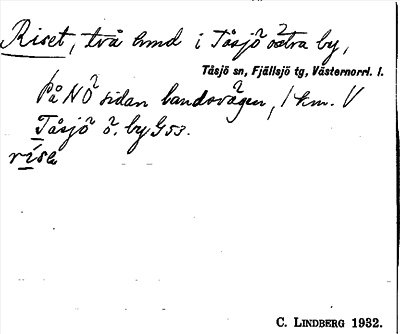 Riset, två hmd i Tåsjö östra by,
Tåsjö sn, Fjällsjö tg, Västernorrl. l.
På NÖ sidan landsvägen, 1 km. V
Tåsjö ö. by G 53.
rise
C. LINDBERG 1932.